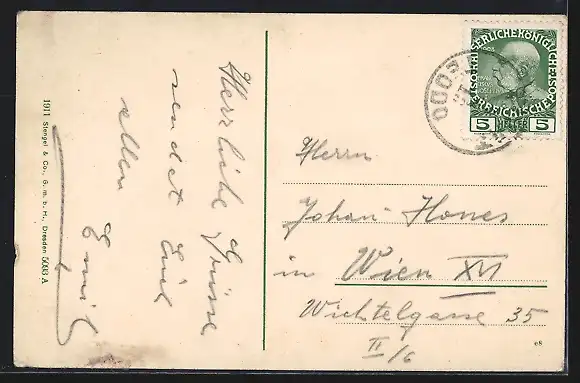 Herrliche Grüsse
sendet Euch
allen
Emil
1911 Stengel & Co., G. m. b. H., Dresden 5063 A
KAISERLICHE KÖNIGLICHE
ÖSTERREICHISCHE
5 HELLER 5
Herrn
Johan
in Wien XVI
Wichtelgasse 35
II/6
e8